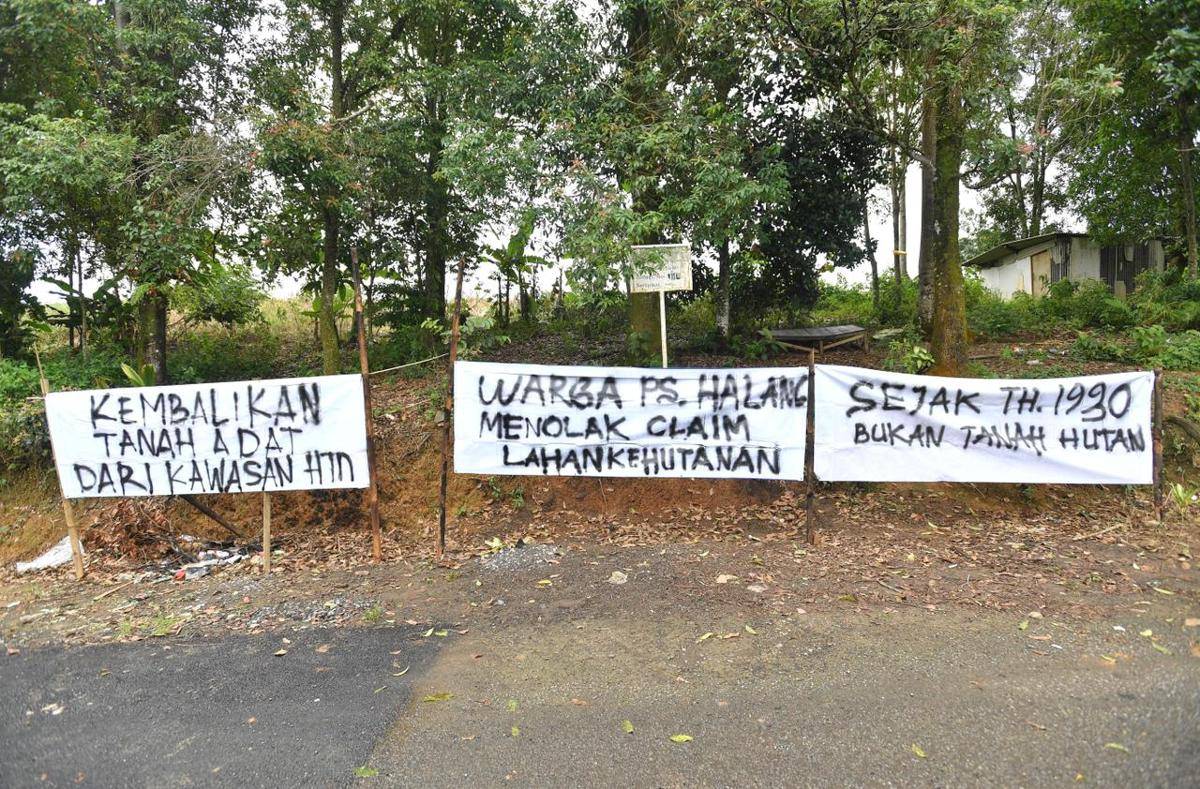 KEMBALIKAN
TANAH ADAT
DARI KAWASAN HTN
WARGA PS. HALANG
MENOLAK CLAIM
LAHAN KEHUTANAN
SEJAK TH. 1990
BUKAN TANAH HUTAN